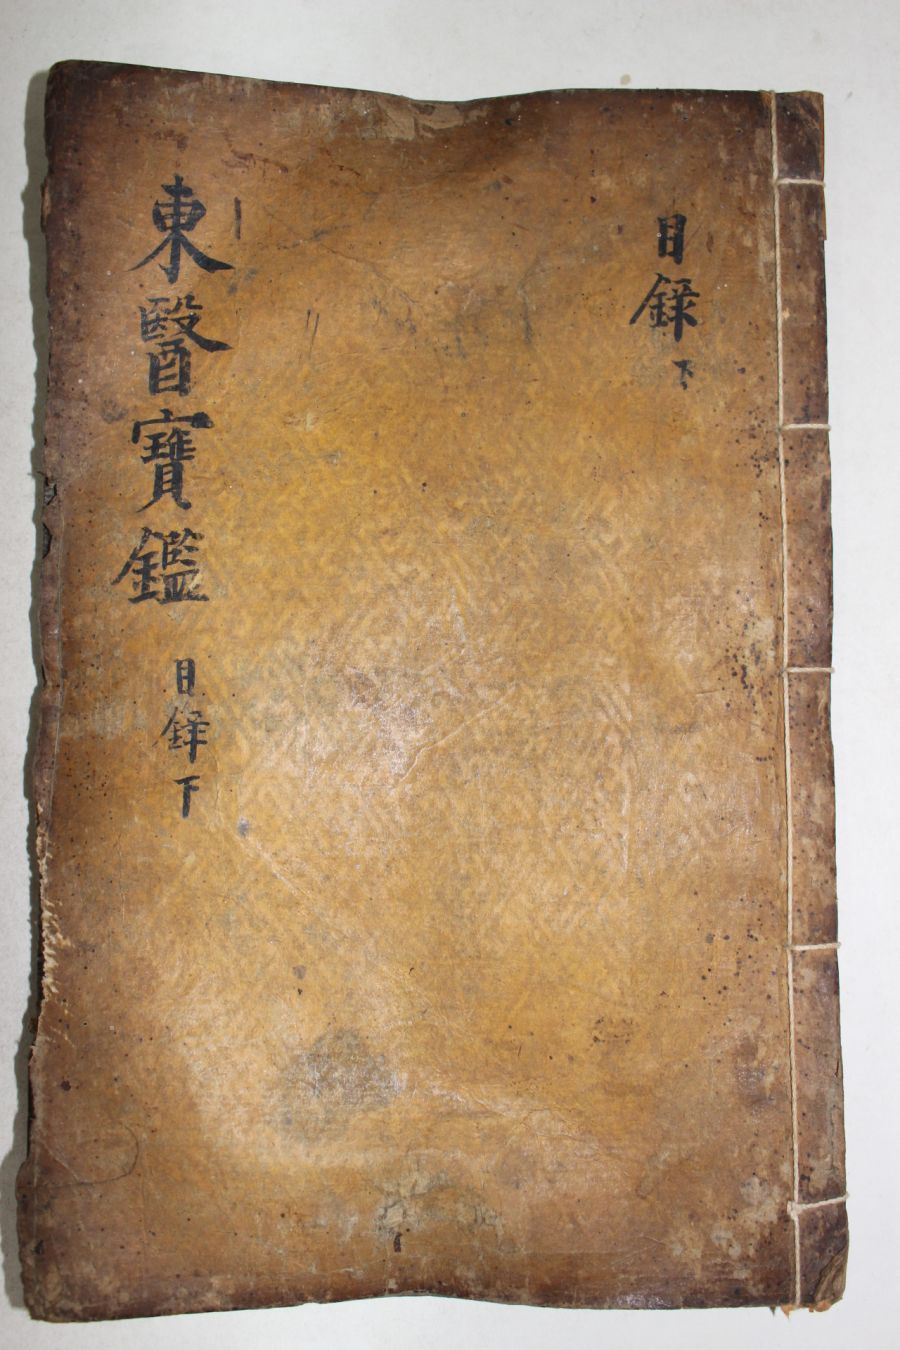 目錄 下
東醫寶鑑 目錄 下